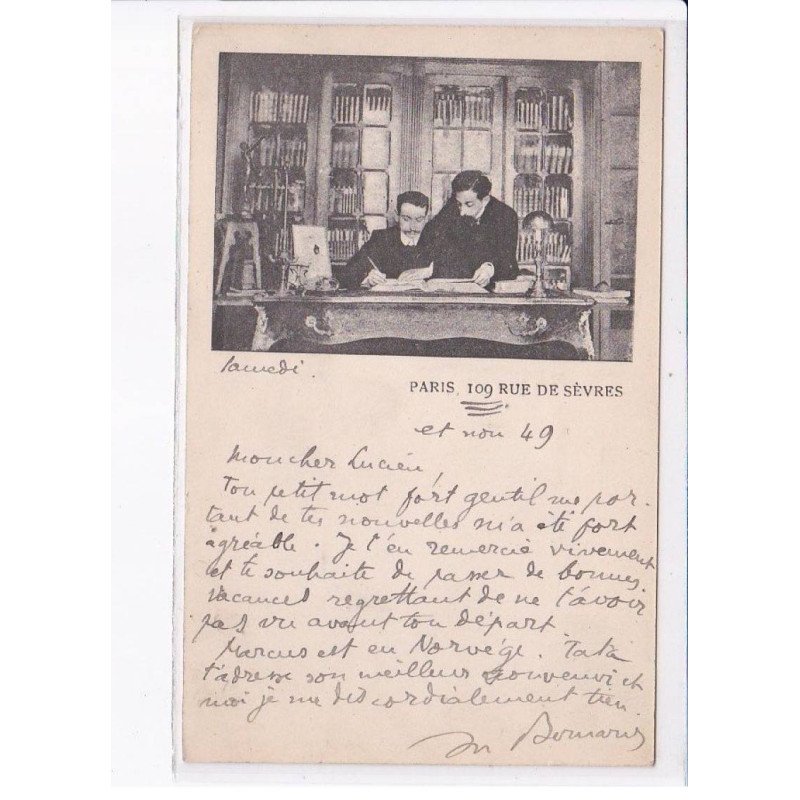 Samedi.
PARIS, 109 RUE DE SÈVRES
et non 49
Mon cher Lucien,
Ton petit mot fort gentil me por-
tant de tes nouvelles m'a été fort
agréable. Je t'en remercie vivement
et te souhaite de passer de bonnes
vacances regrettant de ne t'avoir
pas vu avant ton départ.
Marcus est en Norvège. Tata
t'adresse son meilleur souvenir et
moi je me dis cordialement tien.
M